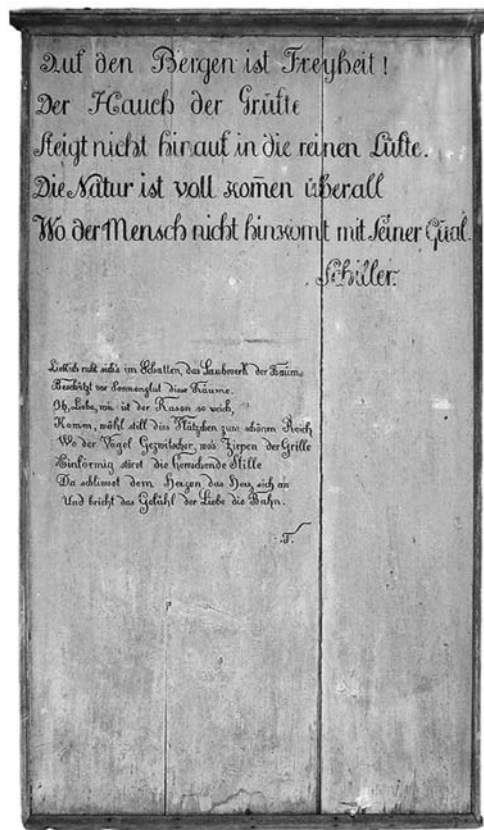 Auf den Bergen ist Freyheit!
Der Hauch der Grüfte
steigt nicht hinauf in die reinen Lüfte.
Die Natur ist voll kom̄en überall
Wo der Mensch nicht hinkom̄t mit seiner Qual.
Schiller.
Lieblich ruht sich's im Schatten, das Laubwerk der Bäume
Beschützt vor Sonnenglut diese Räume.
Oh, Liebe, wie ist der Rasen so weich,
Komm, wähl still dies Plätzchen zum schönen Reich
Wo der Vögel Gezwitscher, wo's Ziepen der Grille
Einförmig störet die herrschende Stille
Da schliesset dem Herzen das Herz sich an
Und bricht das Gefühl der Liebe die Bahn.
T.